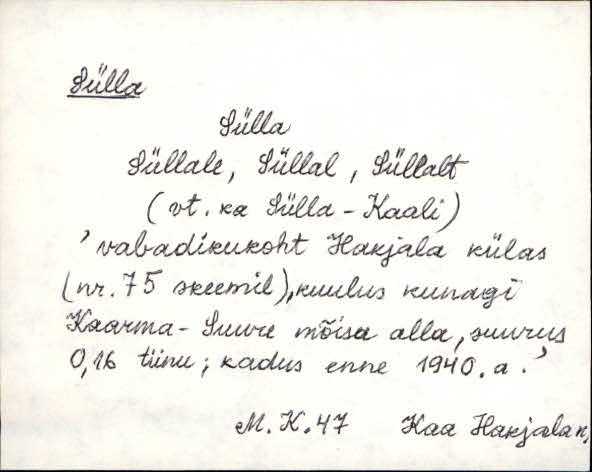 Sülla
Sülla
Süllale, Süllal, Süllalt
(vt. ka Sülla - Kaali)
'vabadikukoht Hakjala külas
(nr. 75 skeemil), kuulus kunagi
Kaarma - Suure mõisa alla, suurus
0,16 tiinu; kadus enne 1940. a.'
M. K. 47 Kaa Hakjala n,